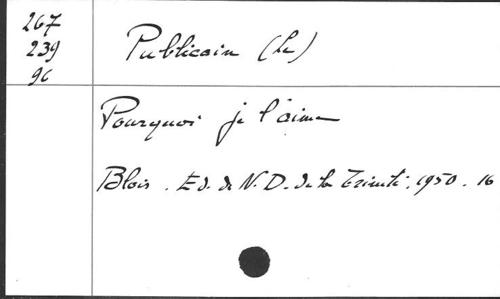 267
239
96
Publicain (Le)
Pourquoi je l'aime
Blois. Ed. de N. D. de la Trinité, 1950. 16